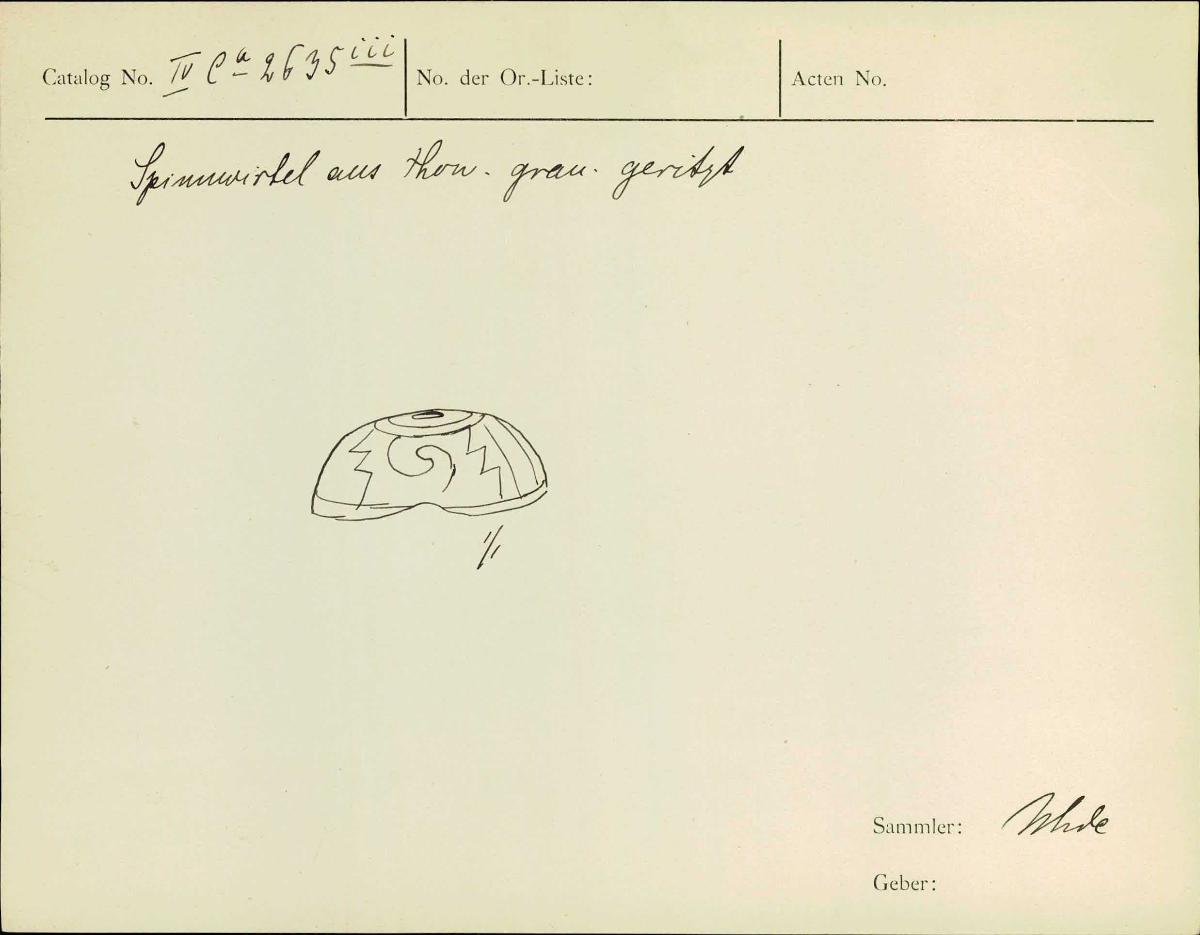 Catalog No. IV Ca 2635 iii
No. der Or.-Liste:
Acten No.
Spinnwirtel aus Thon. grau. geritzt
1/1
Sammler: Uhde
Geber: